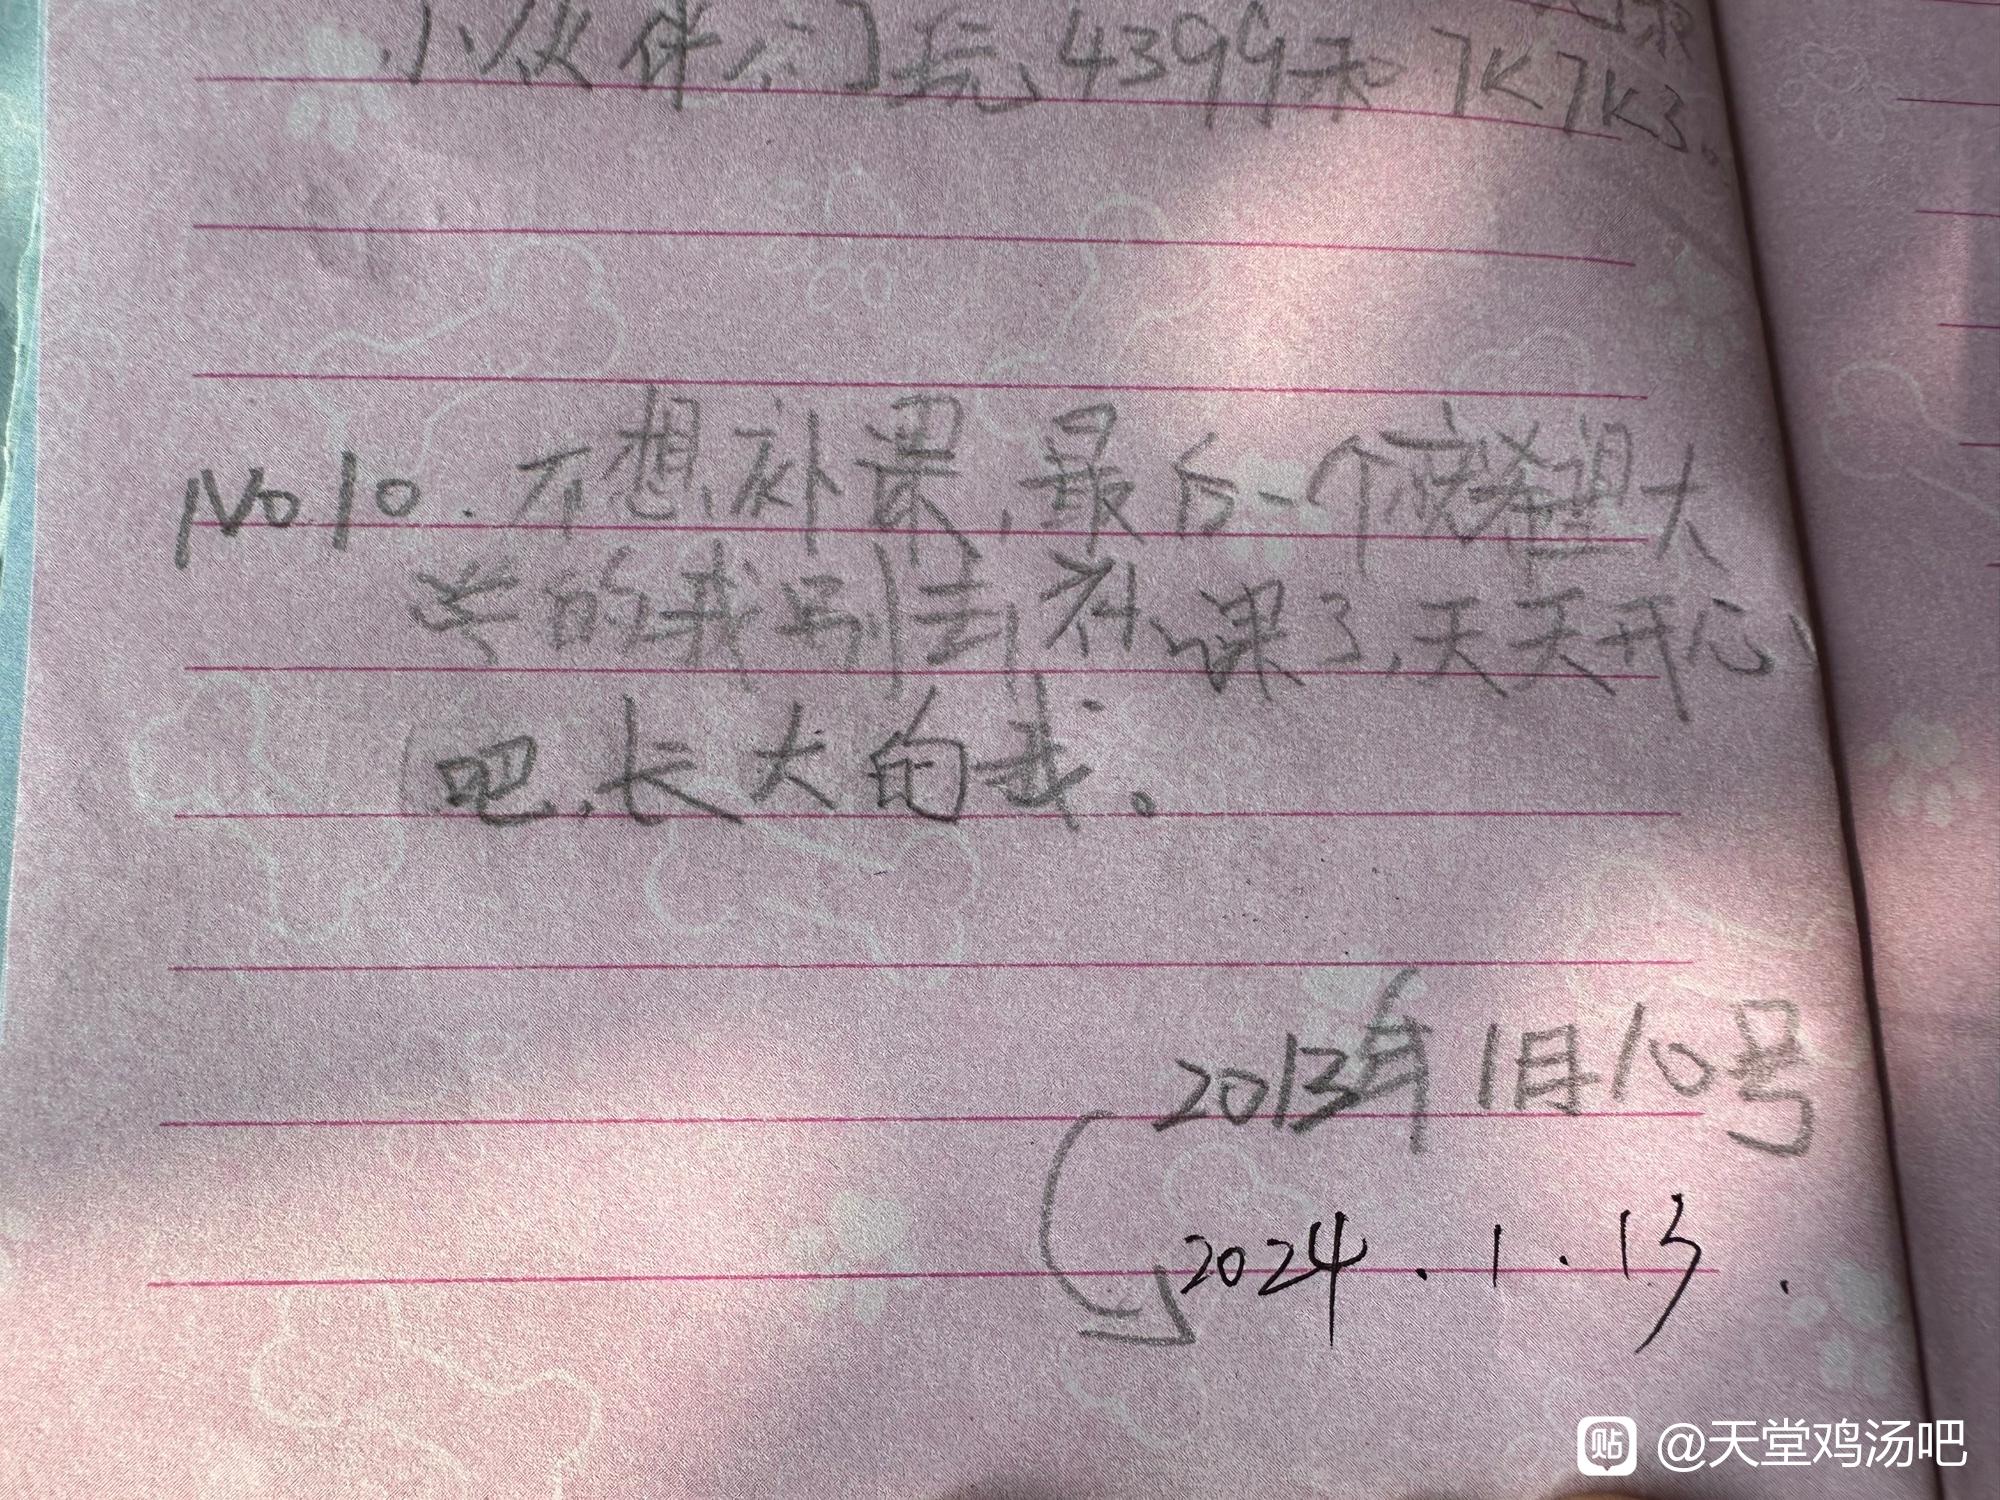 小伙伴们玩4399和7K7K3。
No10.不想补课,最后一个就希望大
学的我别去补课了,天天开心
吧,长大的我。
2013年1月10号
2024.1.13.
贴 @天堂鸡汤吧